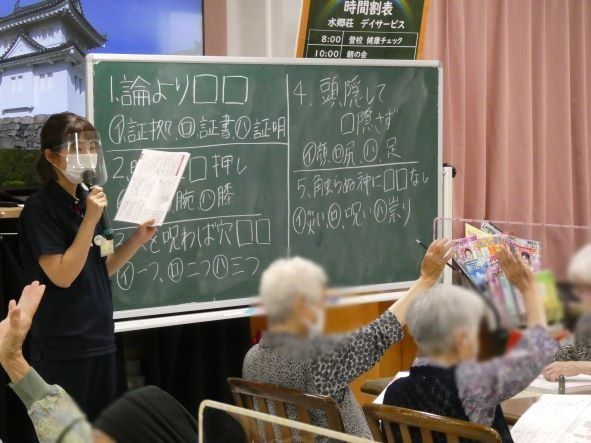 時間割表
水郷荘 デイサービス
8:00 登校 健康チェック
10:00 朝の会
1.論より□□
イ証拠、ロ証書、ハ証明
2. □押し
腕、ハ膝
を呪わば穴□□
イ一つ、ロ二つ、ハ三つ
4、頭隠して
□隠さず
イ旗、ロ尻、ハ足
5.角触らぬ神に□□なし
イ災い、ロ呪い、ハ祟り